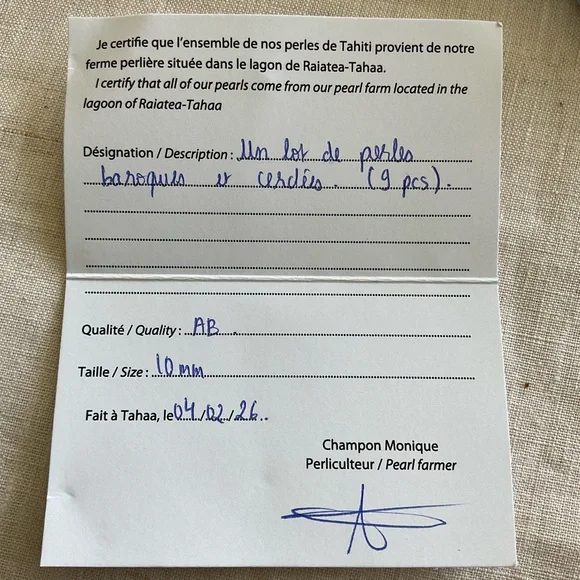 Je certifie que l'ensemble de nos perles de Tahiti provient de notre
ferme perlière située dans le lagon de Raiatea-Tahaa.
I certify that all of our pearls come from our pearl farm located in the
lagoon of Raiatea-Tahaa
Désignation / Description : Un lot de perles
baroques et cerclées. (9 pcs).
Qualité / Quality : AB.
Taille / Size : 10 mm
Fait à Tahaa, le 04/02/26.
Champon Monique
Perliculteur / Pearl farmer